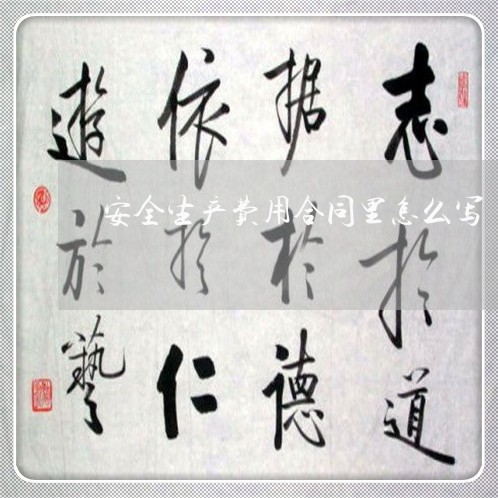 志於道
据於德
依於仁
遊於藝
安全生产费用合同里怎么写